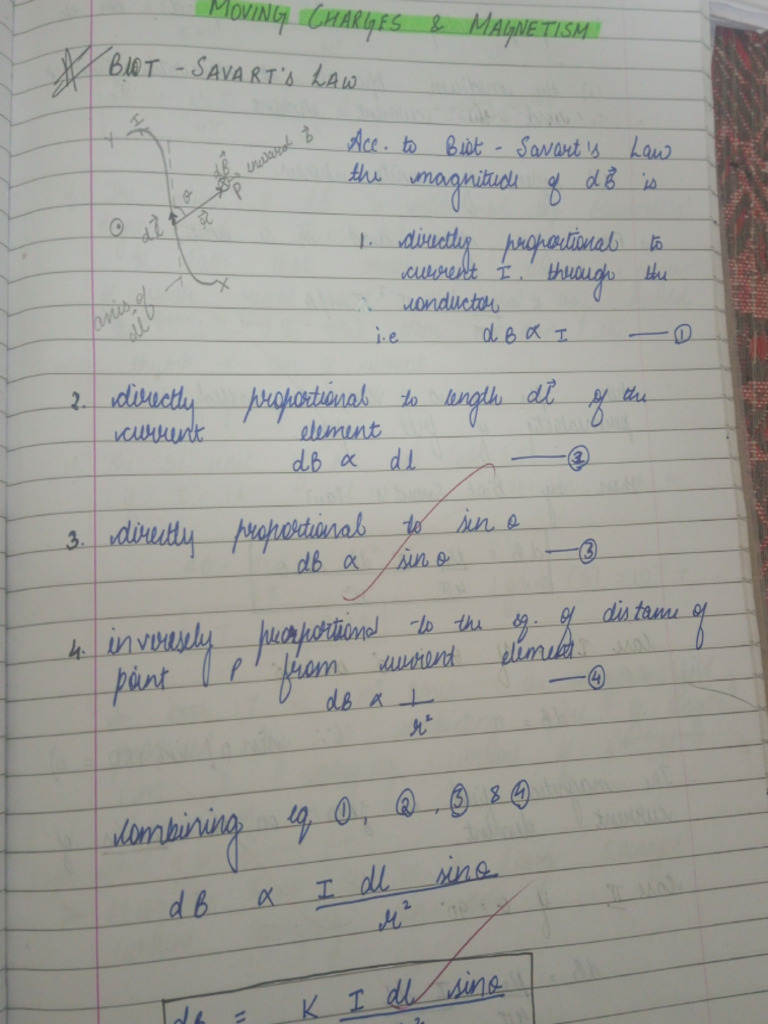 MOVING CHARGES & MAGNETISM
BIOT - SAVART'S LAW
Y
I
dB⃗
inward B⃗
P
θ
r⃗
dl⃗
X
axis of
dl
Acc. to Biot - Savart's Law
the magnitude of dB⃗ is
1. directly proportional to
current I. through the
conductor
i.e dB ∝ I —— ①
2. directly proportional to length dl⃗ of the
current element
dB ∝ dl —— ②
3. directly proportional to sin θ
dB ∝ sin θ —— ③
4. inversely proportional to the sq. of distance of
point P from current element.
dB ∝ 1/r² —— ④
combining eq ①, ②, ③ & ④
dB ∝ I dl sinθ / r²
dB = K I dl sinθ / r²